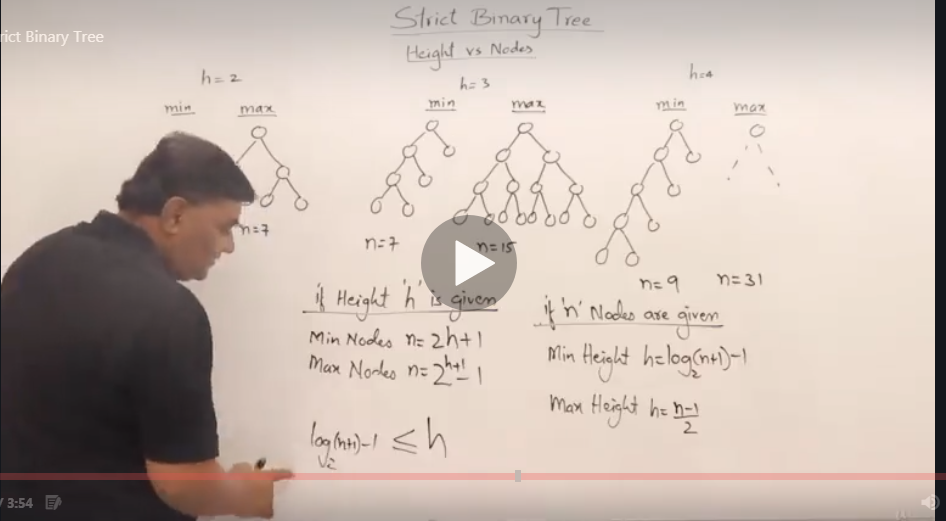 Strict Binary Tree
rict Binary Tree
Height vs Nodes
h=2
min max
n=7
h=3
min max
n=7 n=15
h=4
min max
n=9 n=31
if Height 'h' is given
Min Nodes n=2h+1
Max Nodes n=2^{h+1}-1
if 'n' Nodes are given
Min Height h=log₂(n+1)-1
Max Height h=\frac{n-1}{2}
log₂(n+1)-1 ≤ h
/ 3:54